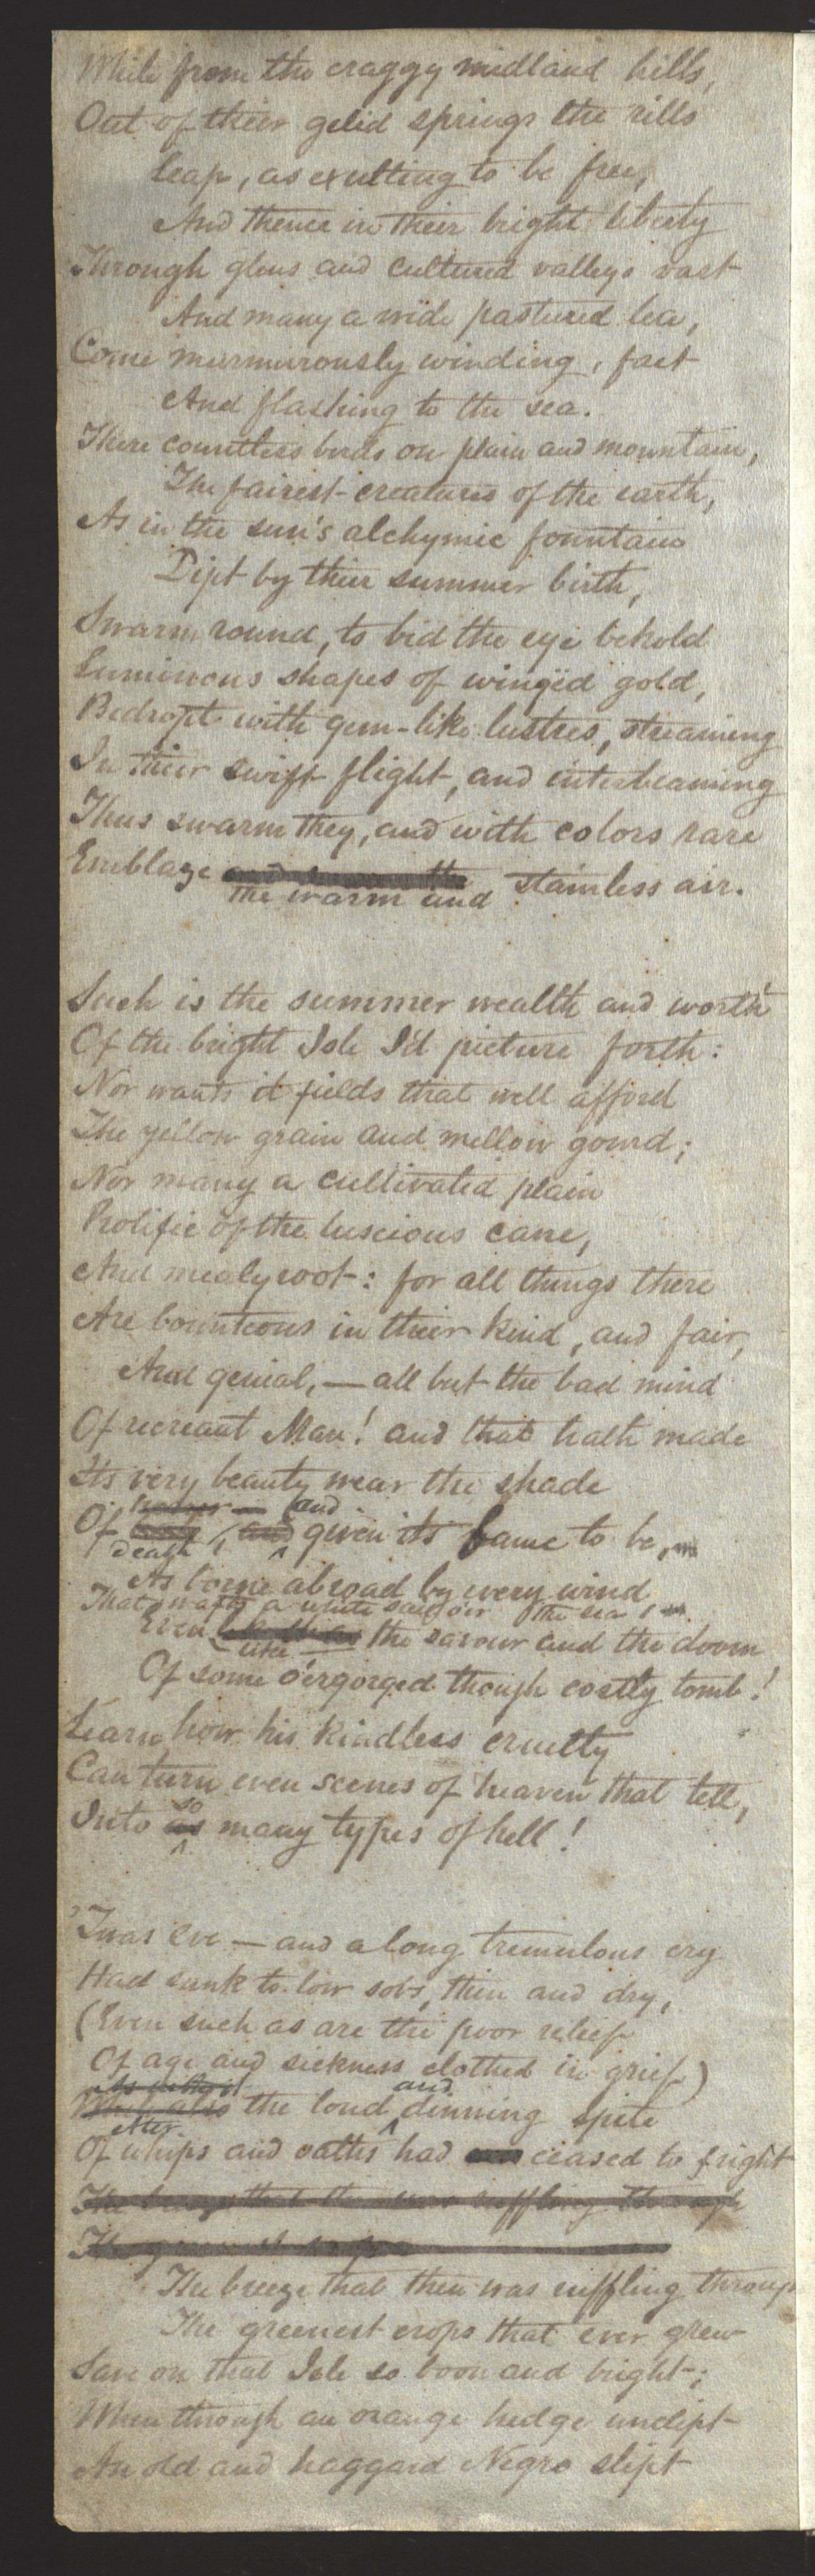 While from the craggy midland hills,
Out of their gelid springs the rills
Leap, as exulting to be free,
And thence in their bright liberty
Through glens and cultured valleys vast
And many a wide pastured lea,
Come murmurously winding, fast
And flashing to the sea.
There countless birds on plain and mountain,
The fairest creatures of the earth,
As in the sun's alchymic fountain
Dipt by their summer birth,
Swarm round, to bid the eye behold
Luminous shapes of wingëd gold,
Bedropt with gem-like lustres, streaming
In their swift flight, and interbeaming
Thus swarm they, and with colors rare
Emblaze the warm and stainless air.
Such is the summer wealth and worth
Of the bright Isle I'd picture forth:
Nor wants it fields that well afford
The yellow grain and mellow gourd;
Nor many a cultivated plain
Prolific of the luscious cane,
And mealy root: for all things there
Are bounteous in their kind, and fair,
And genial, — all but the bad mind
Of recreant Man! and that hath made
Its very beauty wear the shade
Of death, and given its fame to be,
As borne abroad by every wind
That wafts a white sail o'er the sea,
Even like the savour and the doom
Of some o'ergorged though costly tomb!
Learn how his kindless cruelty
Can turn even scenes of heaven that tell,
Into so many types of hell!
'Twas eve — and a long tremulous cry
Had sunk to low sobs, thin and dry,
(Even such as are the poor relief
Of age and sickness clothed in grief)
After the loud and dinning spite
Of whips and oaths had ceased to fright
The breeze that then was ruffling through
The greenest crops that ever grew
Save on that Isle so boon and bright;
When through an orange hedge unclipt
An old and haggard Negro slipt